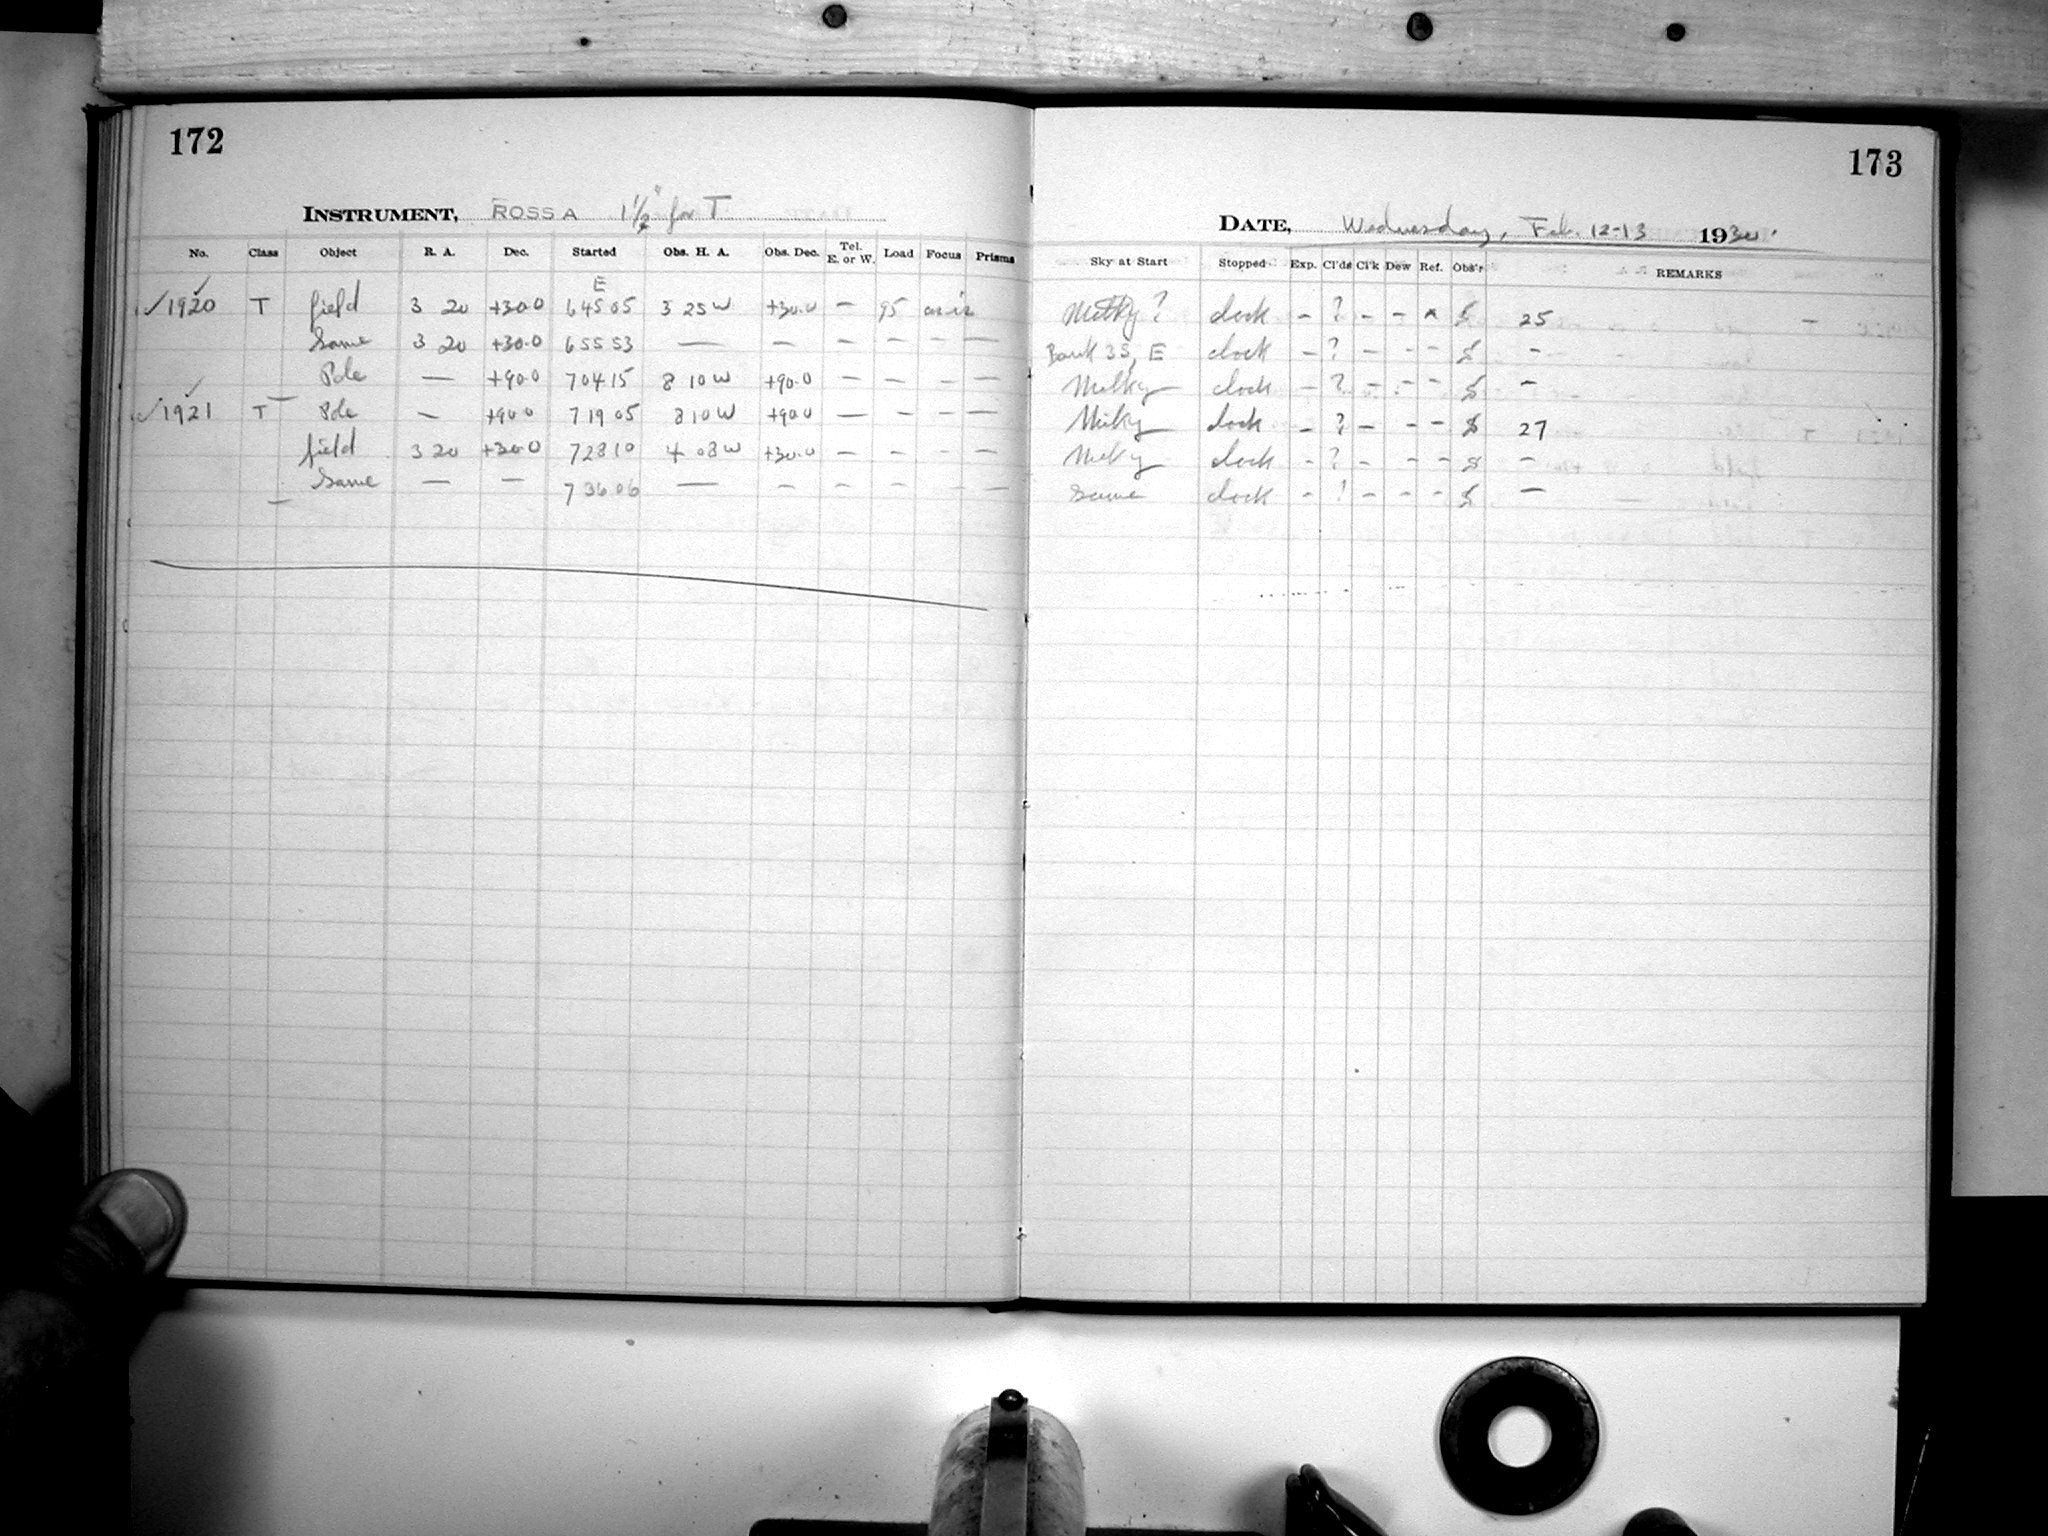 172
INSTRUMENT, ROSS A 1½" for T
No. Class Object R. A. Dec. Started Obs. H. A. Obs. Dec. Tel. E. or W. Load Focus Prisms
E
✓1920 T field 3 20 +30.0 645 05 3 25 W +30.0 — 95 as is
Same 3 20 +30.0 655 53 — — — — — —
Pole — +90.0 704 15 8 10 W +90.0 — — — —
✓1921 T Pole — +90.0 719 05 8 10 W +90.0 — — — —
field 3 20 +30.0 728 10 4 03 W +30.0 — — — —
Same — — 736 06 — — — — — —
173
DATE, Wednesday, Feb. 12-13 1930.
Sky at Start Stopped Exp. Cl'ds Cl'k Dew Ref. Obs'r REMARKS
Milky? clock - ? - - 25 —
Bank 35, E clock - ? - - - —
Milky clock - ? - - - —
Milky clock - ? - - - 27
Milky clock - ? - - - —
Same clock - - - - —